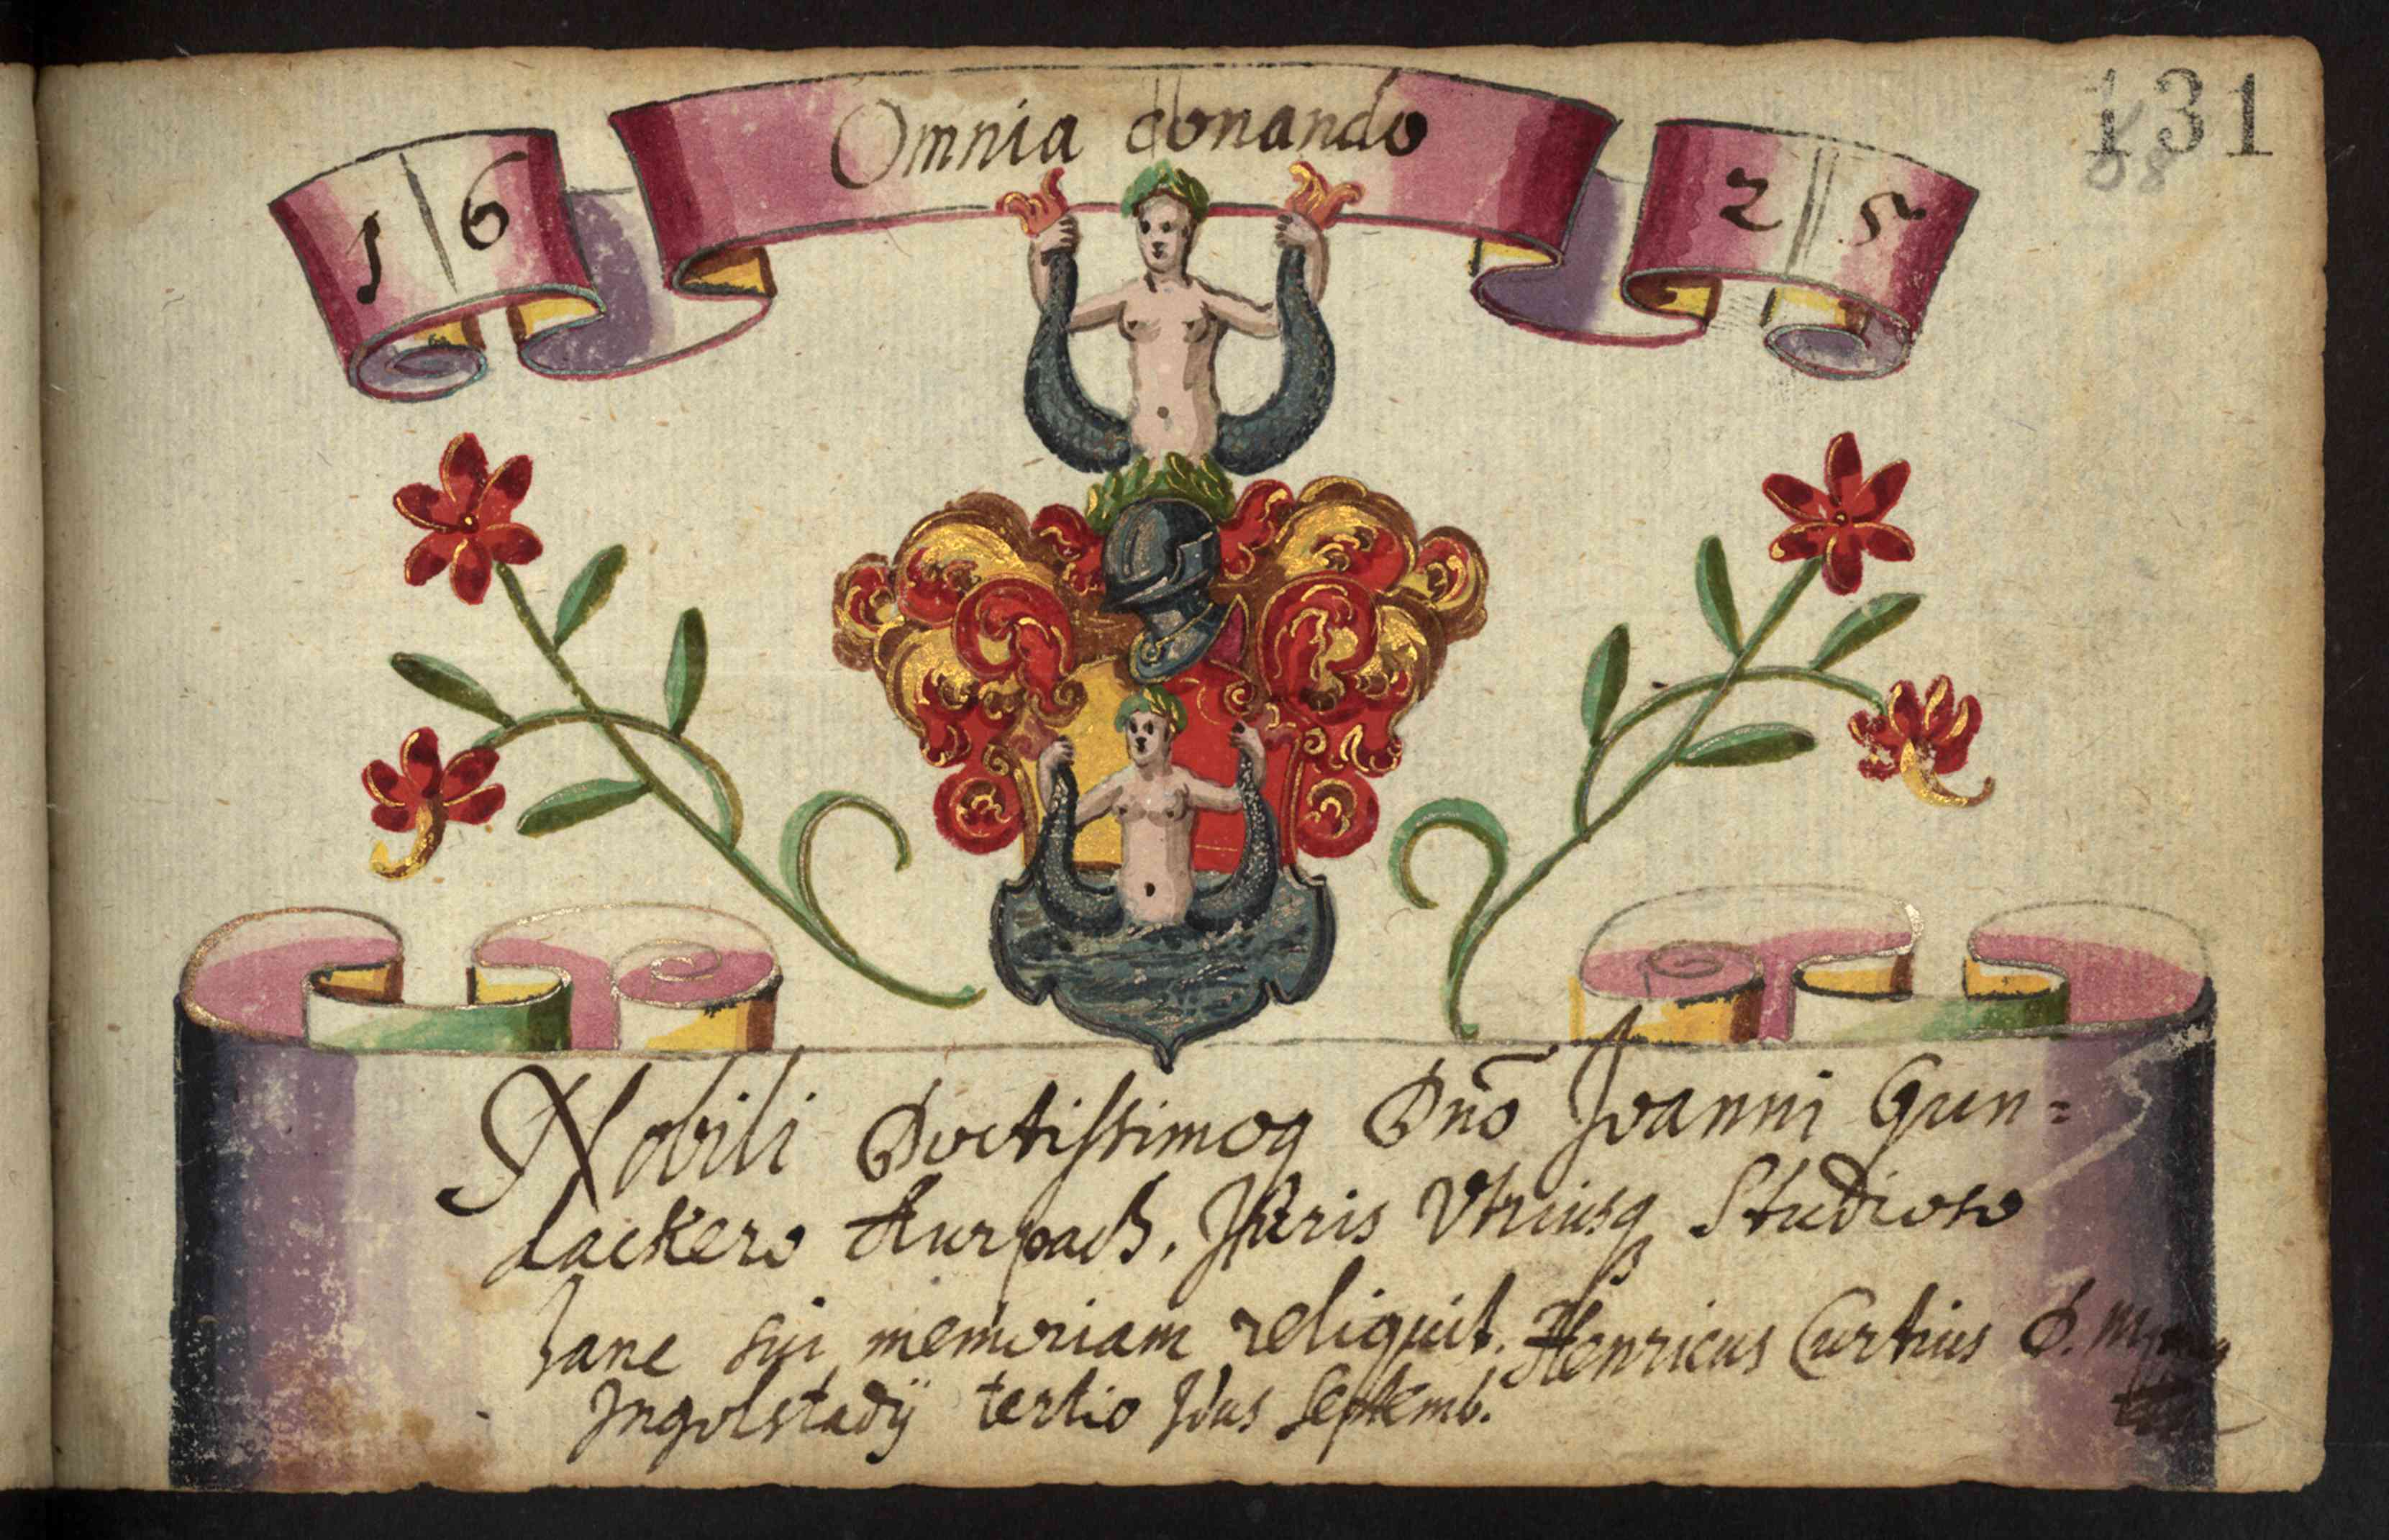 131
68
Omnia conando
16 25
Nobili Doctissimoq Dnō Joanni Gun=
dackero Aurpach, Juris Utriusq Studioso
hanc sui memoriam reliquit. Henricus Curtius D. m
Ingolstadij tertio Idus Septemb.